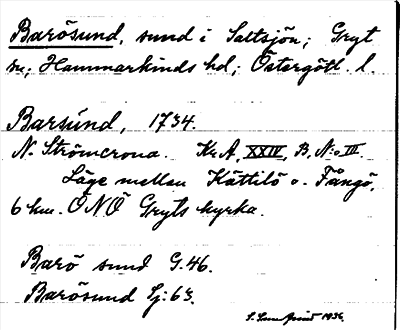 Barösund, sund i Saltsjön; Gryt
sn; Hammarkinds hd; Östergötl. l.
Barsúnd, 1734.
N. Strömcrona. Kr. A, XXIV, B, N:o III.
Läge mellan Kättilö o. Fångö,
6 km. ONO Gryts kyrka.
Barö sund G. 46.
Barösund Sj: 63.
1936.